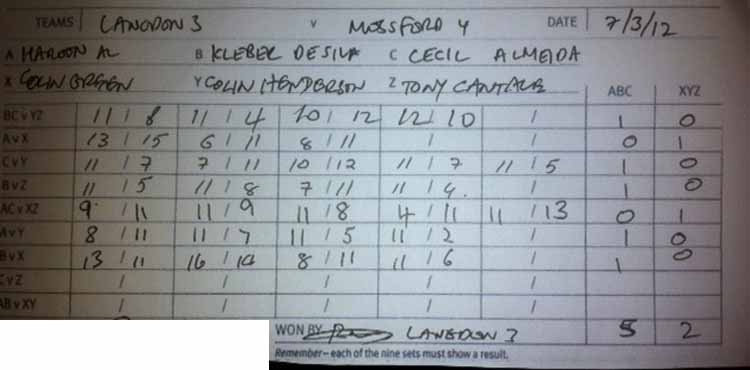 TEAMS LANGDON 3 V MOSSFORD 4 DATE 7/3/12
A HAROON AL B KLEBER DE SILVA C CECIL ALMEIDA
X COLIN GREEN Y COLIN HENDERSON Z TONY ABC XYZ
BC v YZ 11 / 8 11 / 4 10 / 12 12 / 10 / 1 0
A v X 13 / 15 6 / 11 8 / 11 / / 0 1
C v Y 11 / 7 7 / 11 10 / 12 11 / 7 11 / 5 1 0
B v Z 11 / 5 11 / 8 7 / 11 11 / 4. / 1 0
AC v XZ 9 / 11 11 / 9 11 / 8 4 / 11 11 / 13 0 1
A v Y 8 / 11 11 / 7 11 / 5 11 / 2 / 1 0
B v X 13 / 11 16 / 14 8 / 11 11 / 6 / 1 0
C v Z / / / / /
AB v XY / / / / /
WON BY LANGDON 3 5 2
Remember – each of the nine sets must show a result.